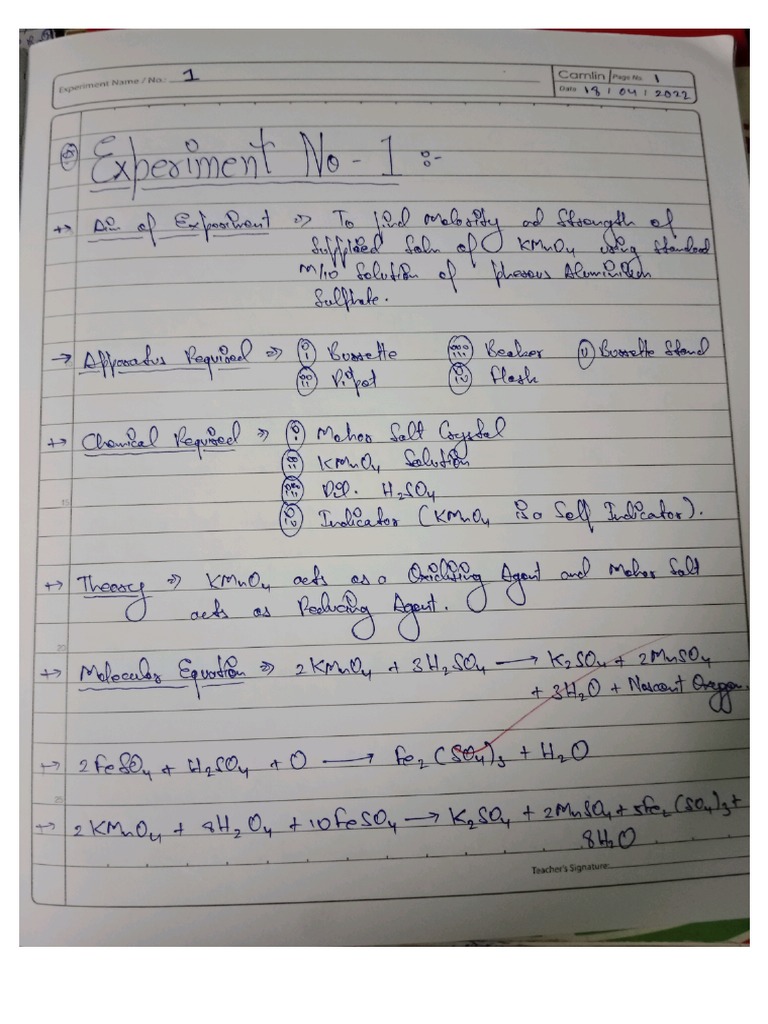 Experiment Name / No.: 1
Camlin Page No. 1
Date 18 / 04 / 2022
Experiment No - 1 :-
→ Aim of Expeoriment ⇒ To find Molosity ad Strength of
Supplied Soln of KMnO4 using Standard
M/10 Solution of pherous Aluminium
Sulphate.
→ Apparatus Required ⇒ (i) Burrette (iii) Beaker (v) Burrette Stand
(ii) Pipet (iv) Flask
→ Chemical Required ⇒ (i) Mohor Salt Crystal
(ii) KMnO4 Solution
(iii) Dil. H2SO4
(iv) Indicator (KMnO4 is a Self Indicator).
→ Theory ⇒ KMnO4 acts as a Oxidising Agent and Mohor Salt
acts as Reducing Agent.
→ Molecular Equation ⇒ 2KMnO4 + 3H2SO4 → K2SO4 + 2MnSO4
+ 3H2O + Nascent Oxygen.
→ 2FeSO4 + H2SO4 + O → Fe2(SO4)3 + H2O
→ 2KMnO4 + 8H2O4 + 10FeSO4 → K2SO4 + 2MnSO4 + 5Fe2(SO4)3 +
8H2O
15
20
25
Teacher's Signature: